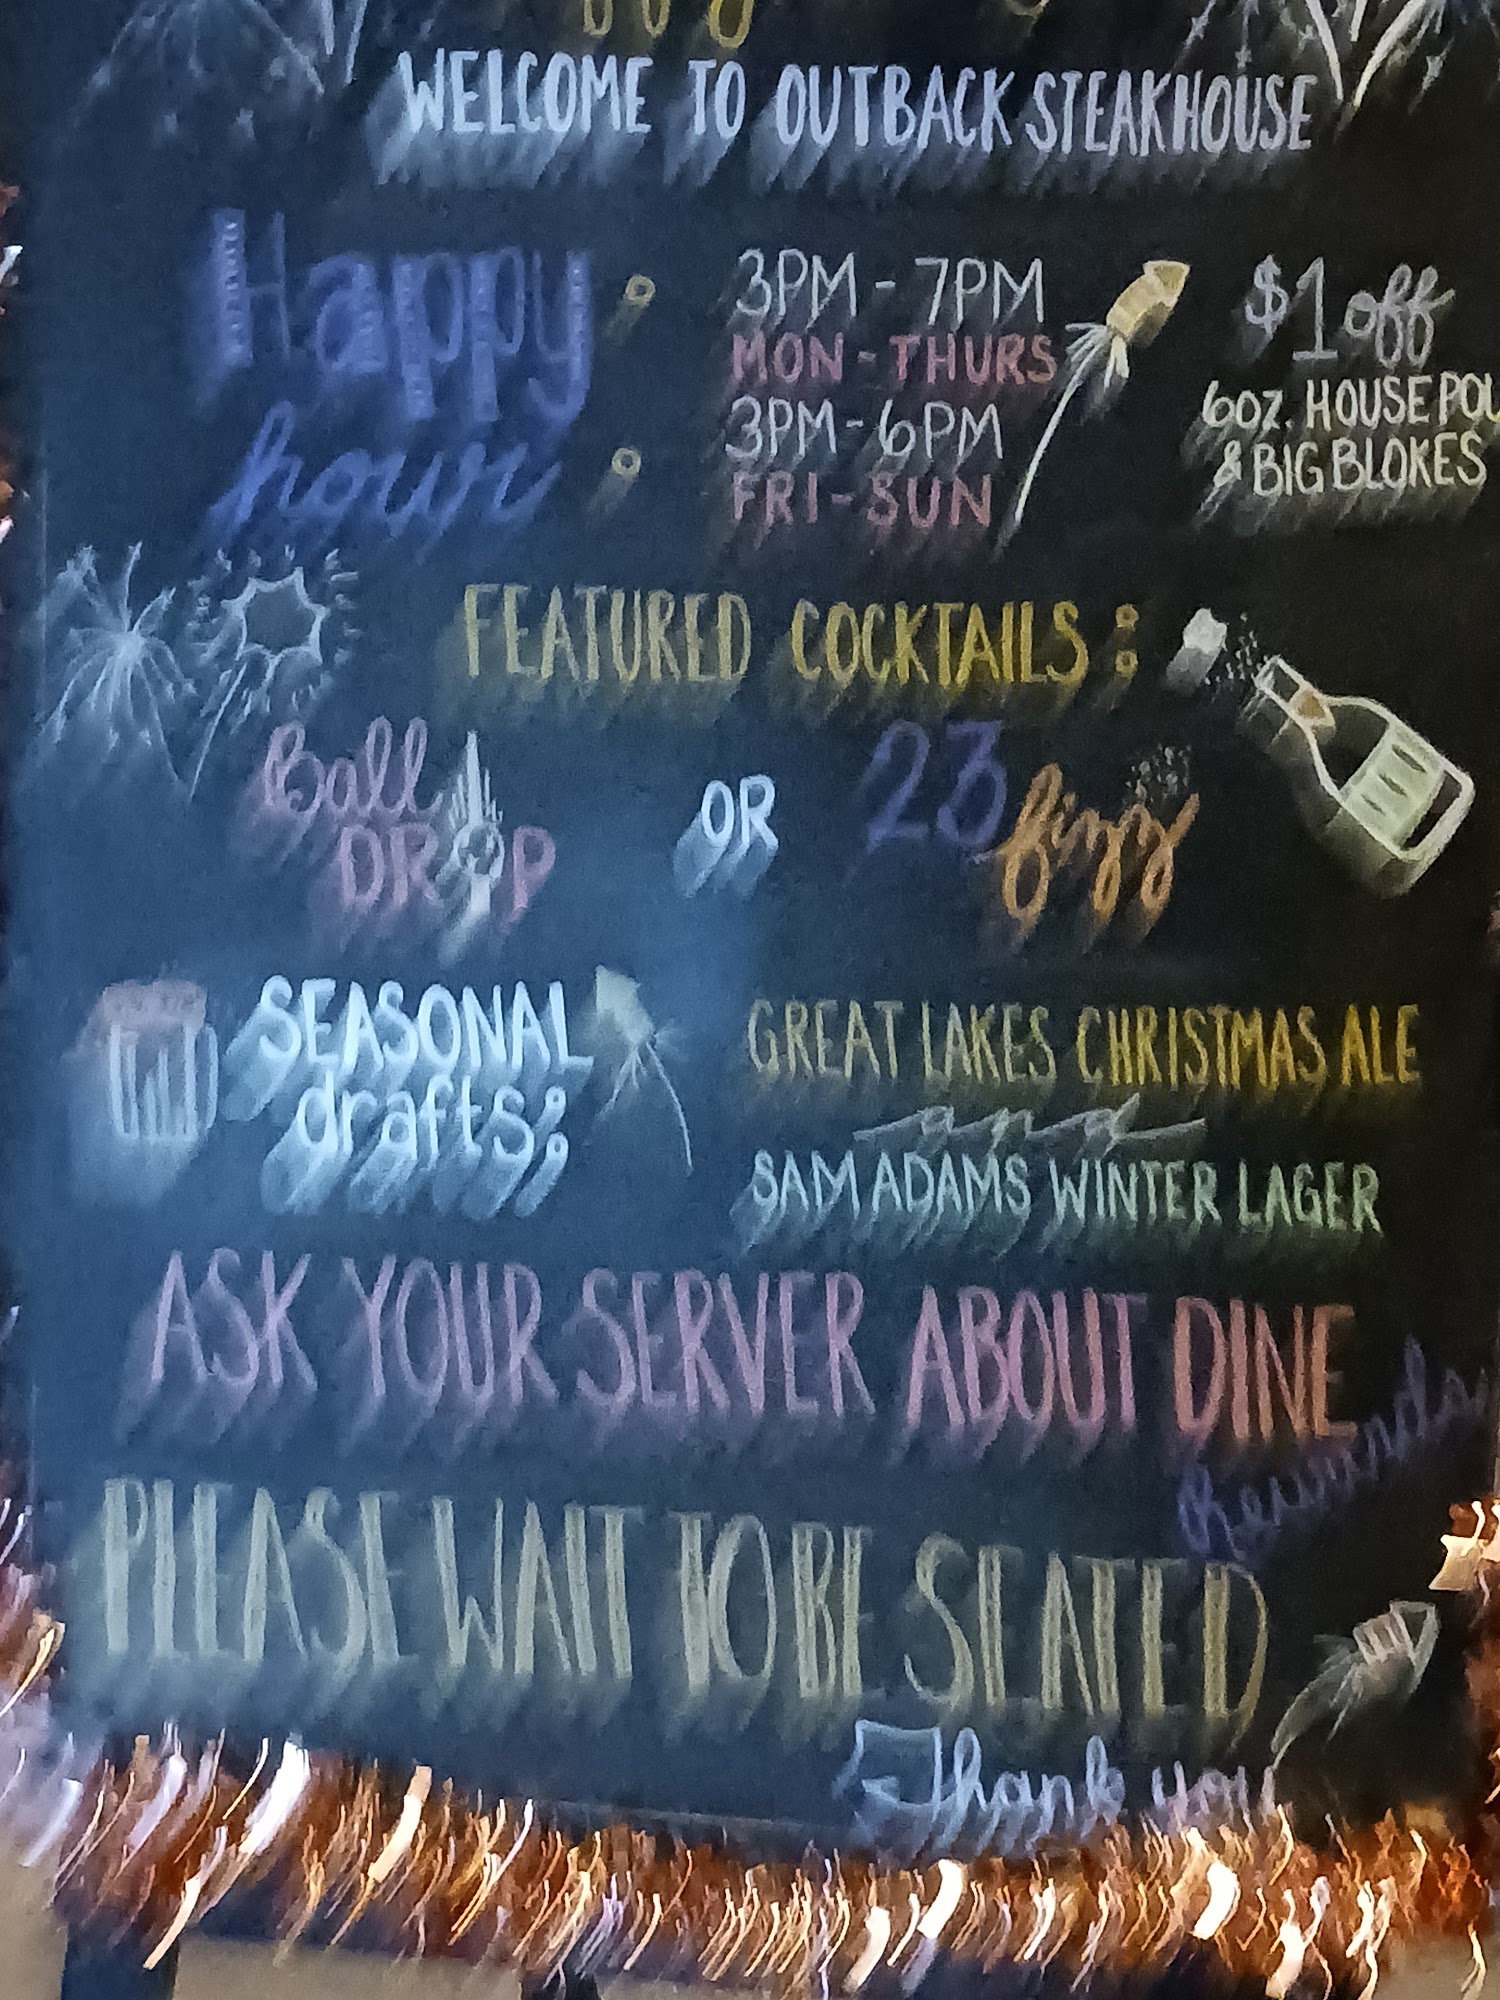 WELCOME TO OUTBACK STEAKHOUSE
Happy
hour
3PM - 7PM
MON - THURS
3PM - 6PM
FRI - SUN
$1 off
6OZ. HOUSE POU
& BIG BLOKES
FEATURED COCKTAILS:
Ball
DROP
OR
23 fizz
SEASONAL
drafts:
GREAT LAKES CHRISTMAS ALE
and
SAM ADAMS WINTER LAGER
ASK YOUR SERVER ABOUT DINE
Rewards
PLEASE WAIT TO BE SEATED
Thank you